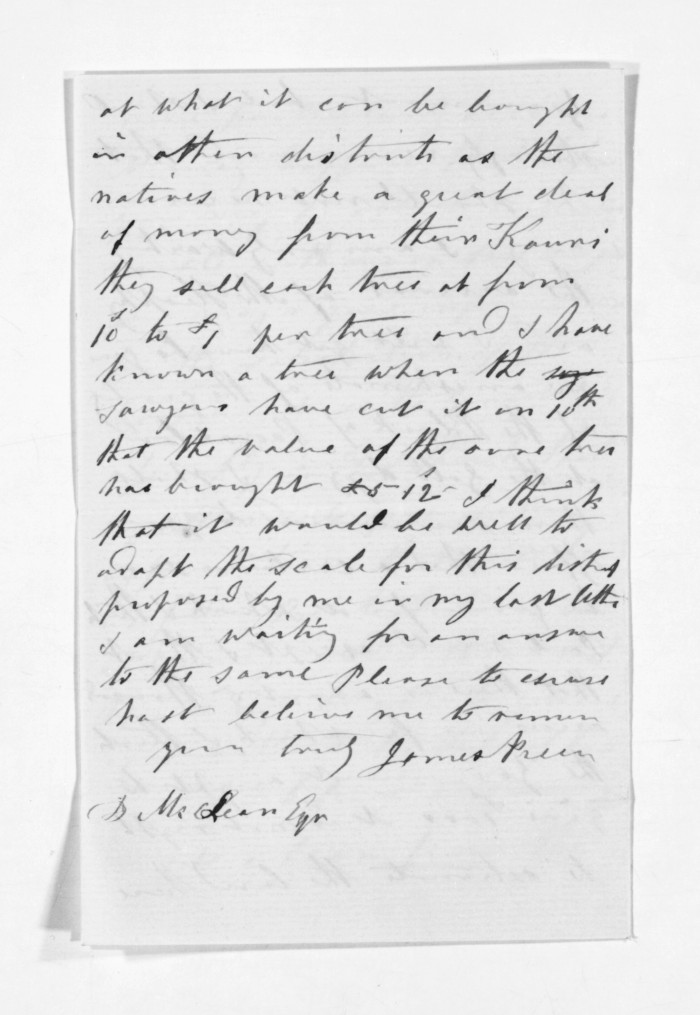 at what it can be bought
in other districts as the
natives make a great deal
of money from their Kauri
they sell each tree at from
10s to £1 per tree and I have
known a tree when the
sawyers have cut it on 10th
that the value of the same tree
has brought £5-12s I think
that it would be well to
adapt the scale for this district
proposed by me in my last letter
I am waiting for an answer
to the same Please to excuse
hast believe me to remain
your truly James Preece
D McLean Eqr